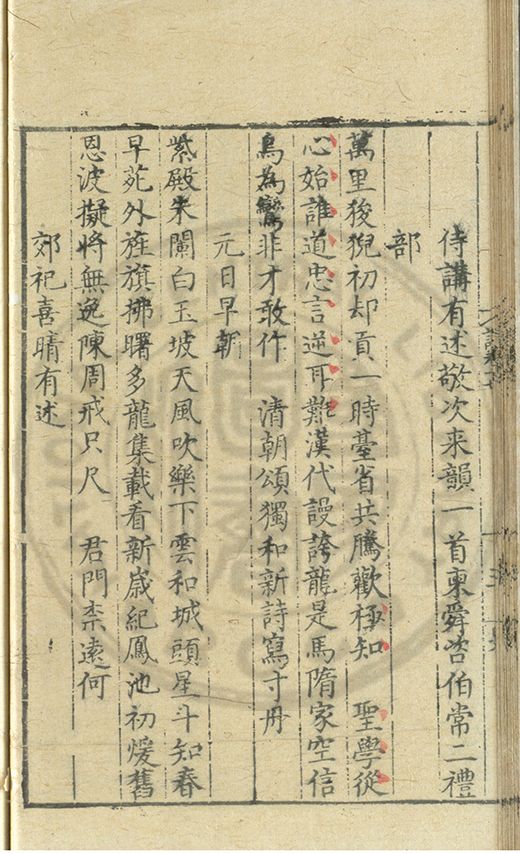 侍講有述敬次来韻一首柬舜咨伯常二禮
部
萬里狻猊初却貢一時臺省共騰歡極知　聖學從
心始誰道忠言逆耳難漢代謾誇龍是馬隋家空信
鳥為鸞非才敢作　清朝頌獨和新詩寫寸丹
元日早朝
紫殿朱闌白玉坡天風吹樂下雲和城頭星斗知春
早苑外旌旗拂曙多龍集載看新歲紀鳳池初煖舊
恩波擬將無逸陳周戒只尺　君門柰遠何
郊祀喜晴有述